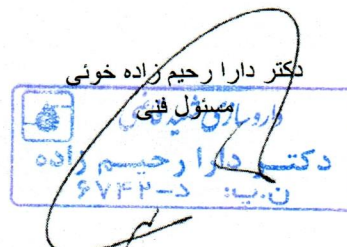 دکتر دارا رحیم زاده خوئی
مسئول فنی
داروسازی شهید قاضی
دکتر دارا رحیم زاده
ن.پ: د-۶۷۴۲